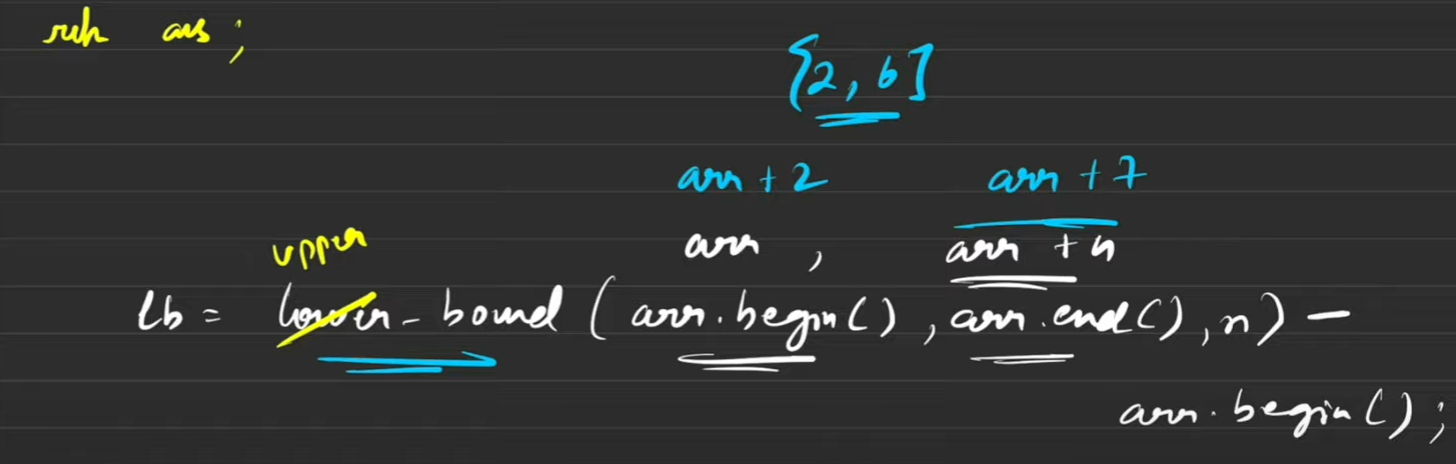 reh ans;
{2, 6]
arr + 2 arr + 7
upper arr , arr + n
lb = lower-bound (arr.begin(), arr.end(), n) -
arr.begin();